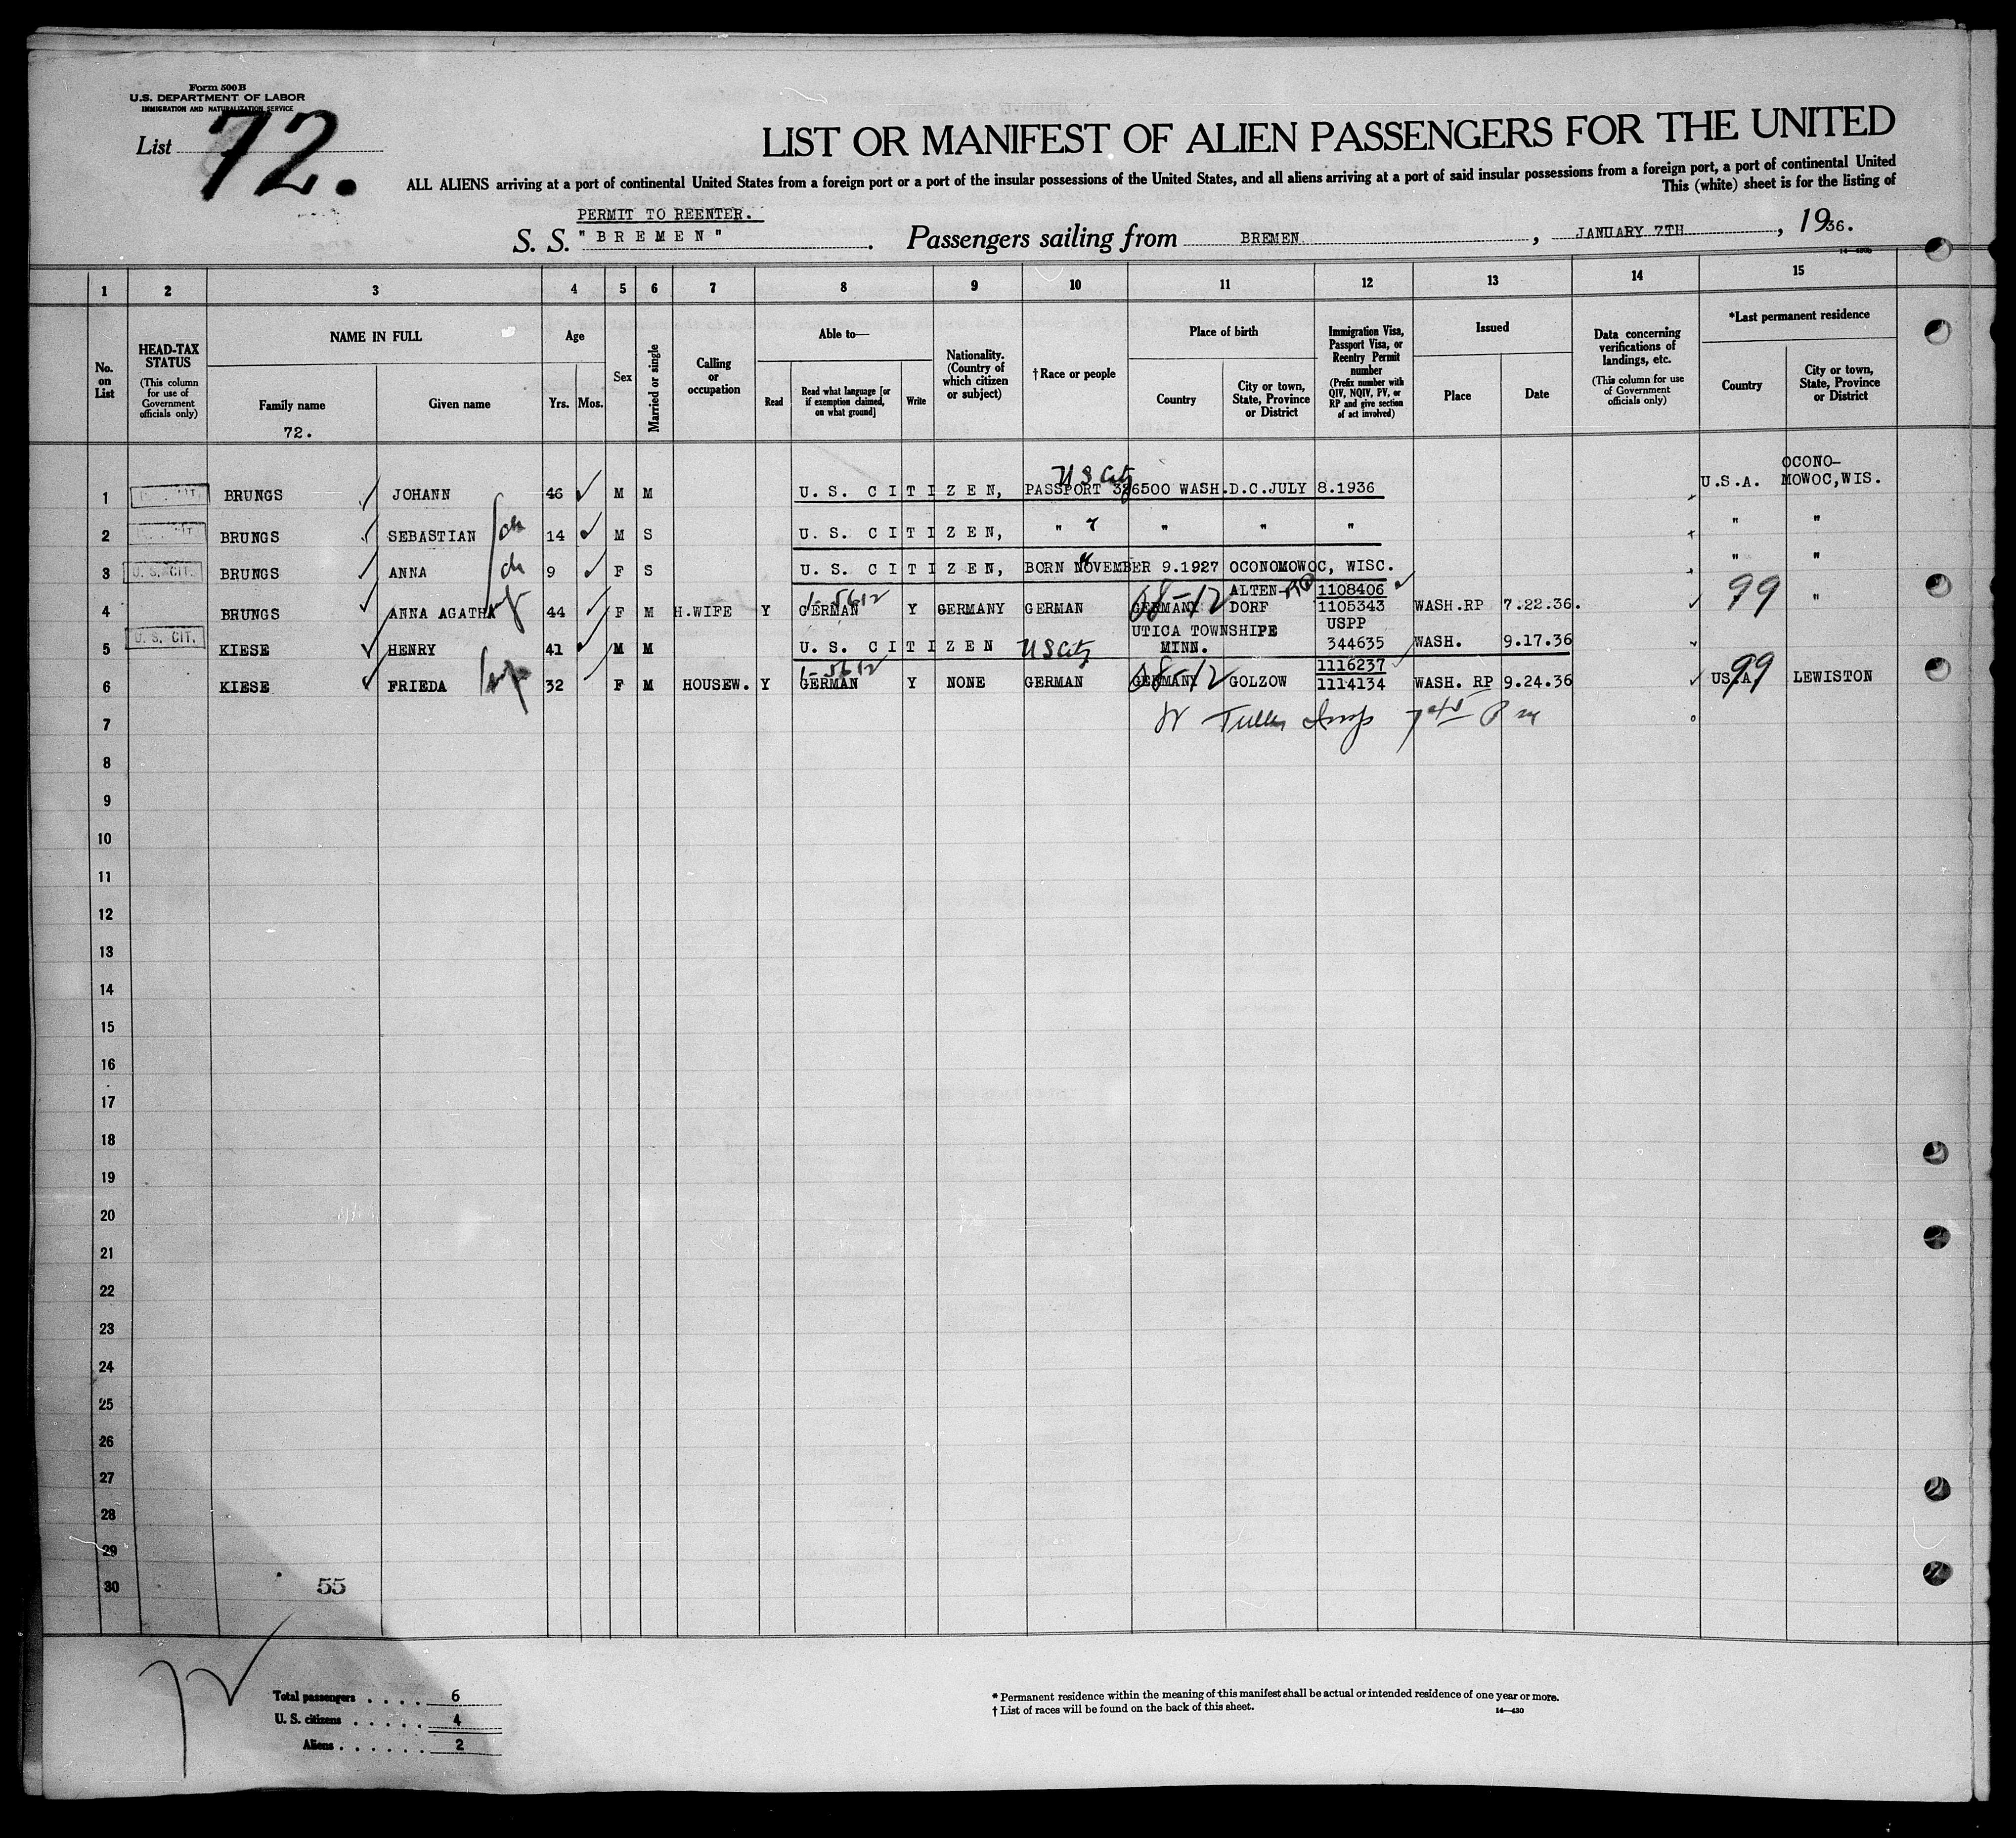 Form 500 B
U.S. DEPARTMENT OF LABOR
IMMIGRATION AND NATURALIZATION SERVICE
List 72.
LIST OR MANIFEST OF ALIEN PASSENGERS FOR THE UNITED
ALL ALIENS arriving at a port of continental United States from a foreign port or a port of the insular possessions of the United States, and all aliens arriving at a port of said insular possessions from a foreign port, a port of continental United
This (white) sheet is for the listing of
PERMIT TO REENTER.
S. S. "BREMEN". Passengers sailing from BREMEN, JANUARY 7TH, 1936.
1 2 3 4 5 6 7 8 9 10 11 12 13 14 15
No. on List
HEAD-TAX STATUS
(This column for use of Government officials only)
NAME IN FULL
Family name
72.
Given name
Age
Yrs. Mos.
Sex
Married or single
Calling or occupation
Able to—
Read
Read what language [or if exemption claimed, on what ground]
Write
Nationality. (Country of which citizen or subject)
† Race or people
Place of birth
Country
City or town, State, Province or District
Immigration Visa, Passport Visa, or Reentry Permit number
(Prefix number with QIV, NQIV, PV, or RP and give section of act involved)
Issued
Place
Date
Data concerning verifications of landings, etc.
(This column for use of Government officials only)
*Last permanent residence
Country
City or town, State, Province or District
US City
1 BRUNGS JOHANN 46 M M U. S. CITIZEN, PASSPORT 326500 WASH.D.C.JULY 8.1936 U.S.A. OCONO-MOWOC,WIS.
2 BRUNGS SEBASTIAN ch 14 M S U. S. CITIZEN, " " " " " "
3 U. S. CIT. BRUNGS ANNA ch 9 F S U. S. CITIZEN, BORN NOVEMBER 9.1927 OCONOMOWOC, WISC. " "
4 BRUNGS ANNA AGATHA 44 F M H.WIFE Y GERMAN 1-5612 Y GERMANY GERMAN GERMANY 08-12 ALTEN-DORF 1108406 1105343 WASH.RP 7.22.36. 99 "
5 U. S. CIT. KIESE HENRY 41 M M U. S. CITIZEN US City UTICA TOWNSHIPE MINN. USPP 344635 WASH. 9.17.36
6 KIESE FRIEDA 32 F M HOUSEW. Y GERMAN 1-5612 Y NONE GERMAN GERMANY 08-12 GOLZOW 1116237 1114134 WASH. RP 9.24.36 USA 99 LEWISTON
7
8
9
10
11
12
13
14
15
16
17
18
19
20
21
22
23
24
25
26
27
28
29
30 55
Total passengers . . . . 6
U. S. citizens . . . . . 4
Aliens . . . . . . 2
* Permanent residence within the meaning of this manifest shall be actual or intended residence of one year or more.
† List of races will be found on the back of this sheet.
14—430